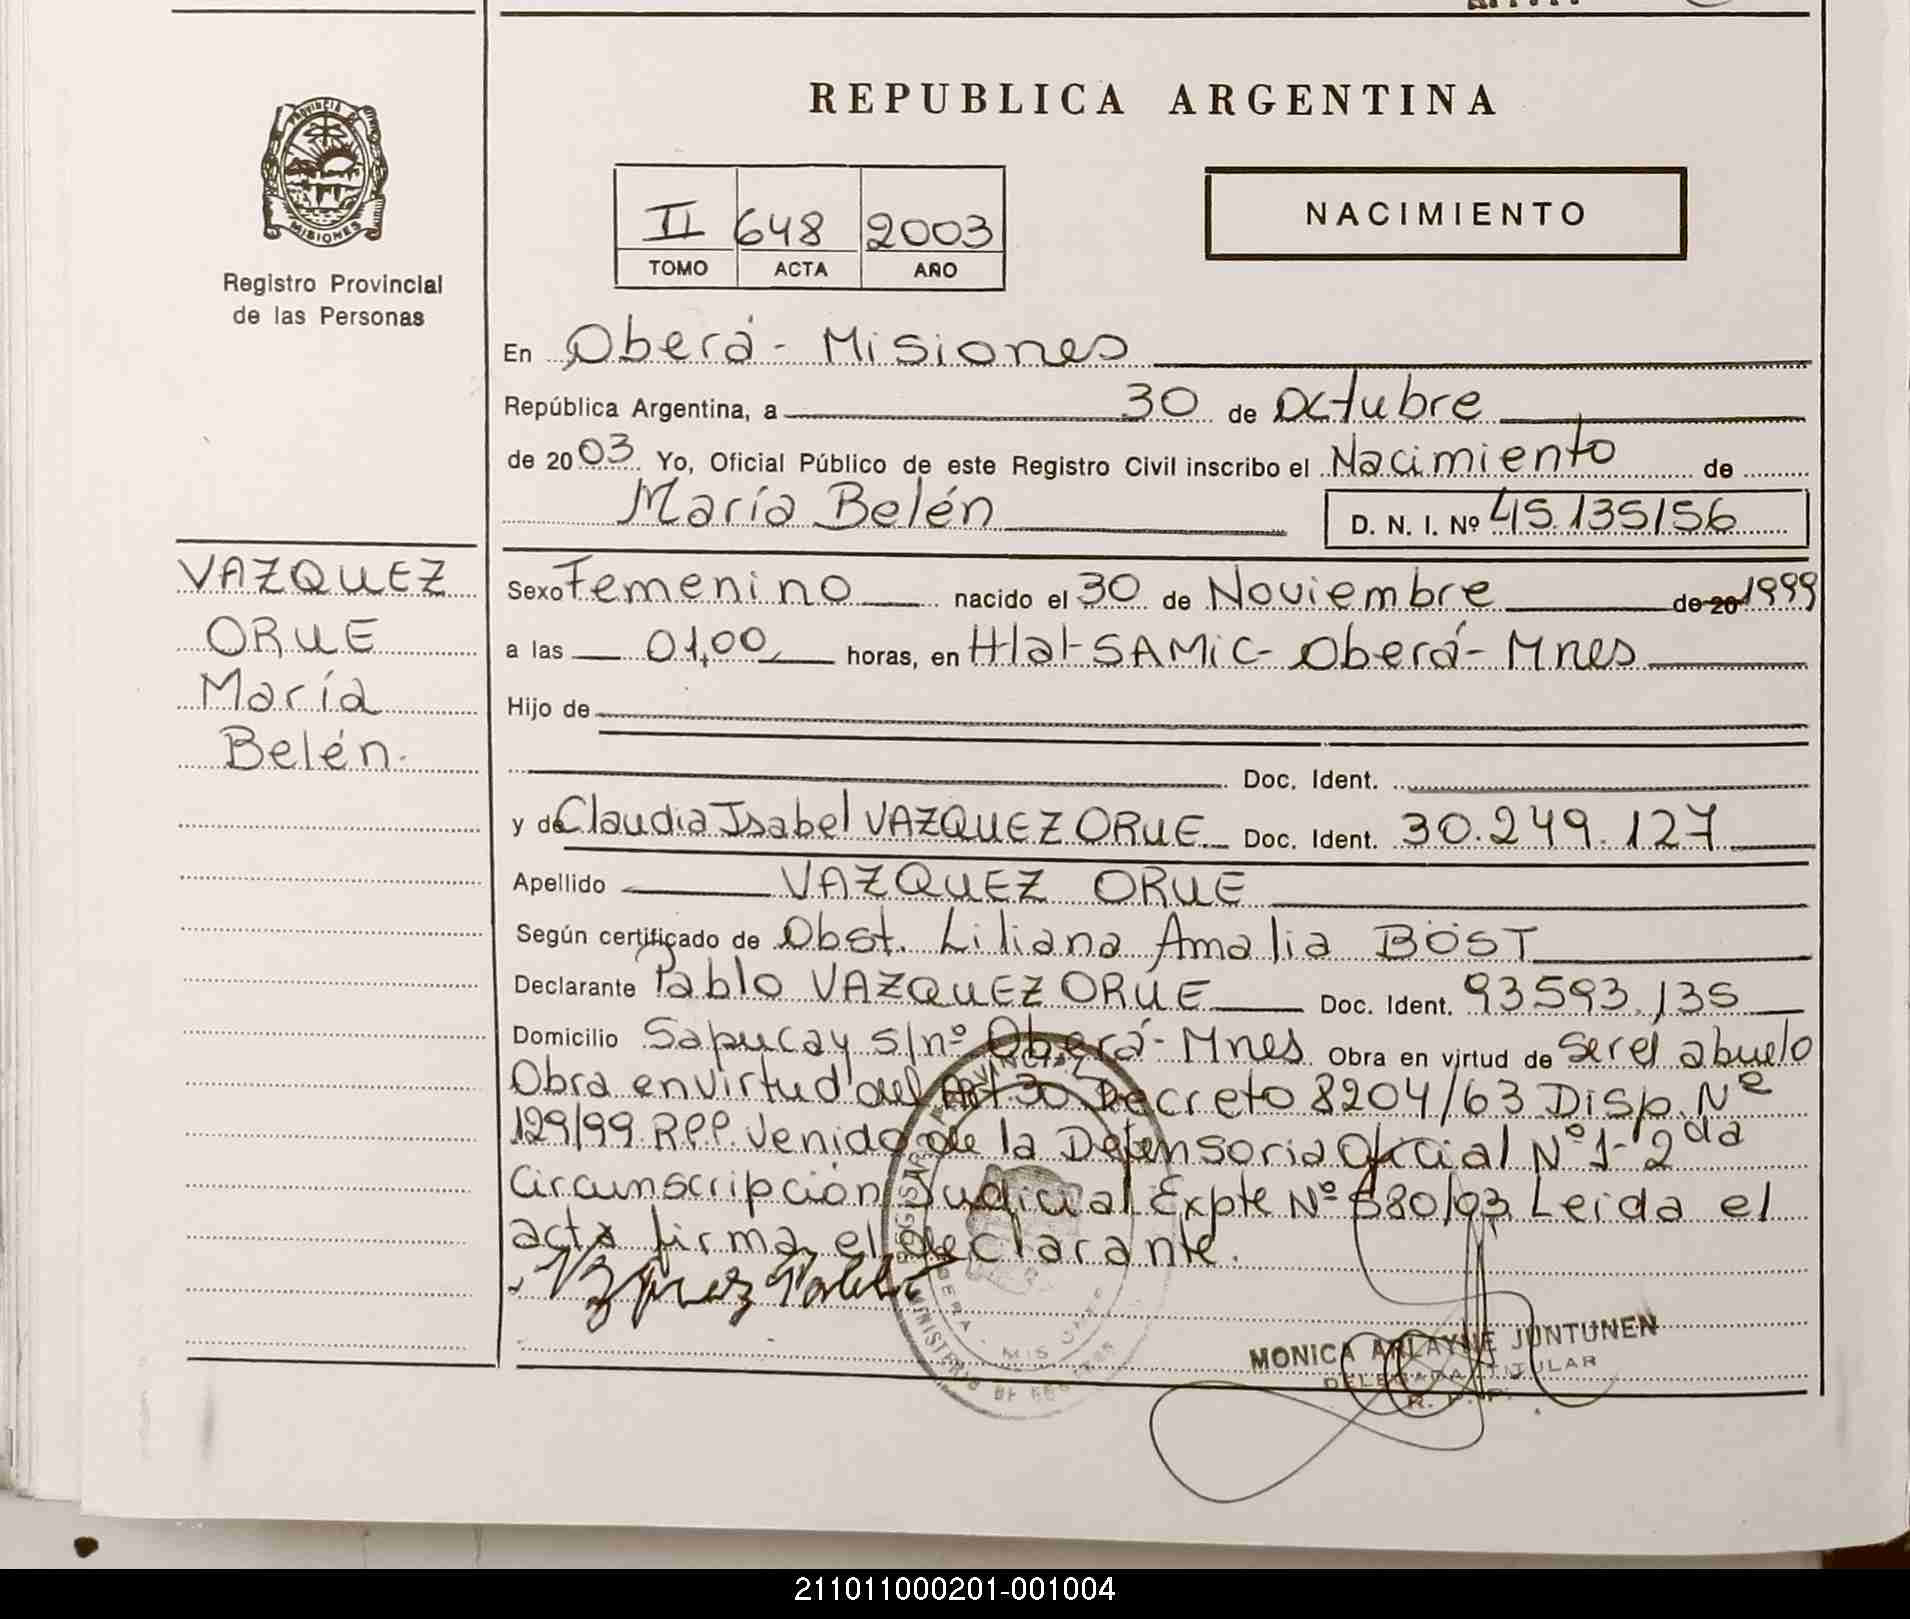 REPUBLICA ARGENTINA
PROVINCIA DE
MISIONES
Registro Provincial
de las Personas
II 648 2003
TOMO ACTA AÑO
NACIMIENTO
En Oberá - Misiones
República Argentina, a 30 de Octubre
de 2003 Yo, Oficial Público de este Registro Civil inscribo el Nacimiento de
María Belén D. N. I. Nº 45.135156
VAZQUEZ
ORUE
María
Belén.
Sexo Femenino nacido el 30 de Noviembre de 20 1999
a las 01,00 horas, en Hlal-SAMIC- Oberá- Mnes
Hijo de
Doc. Ident.
y de Claudia Isabel VAZQUEZ ORUE Doc. Ident. 30.249.127
Apellido VAZQUEZ ORUE
Según certificado de Obst. Liliana Amalia BÖST
Declarante Pablo VAZQUEZ ORUE Doc. Ident. 93593.135
Domicilio Sapucay s/nº Oberá- Mnes Obra en virtud de Ser el abuelo
Obra en virtud del Art 30 Decreto 8204/63 Disp. Nº
129/99 RPP. Venido de la Defensoria Oficial Nº 1- 2da
Circunscripción Judicial Expte Nº 580/03 Leida el
acta firma el declarante.
MONICA ARLAYNE JUNTUNEN
DELEGADA TITULAR
R. P. P.
211011000201-001004